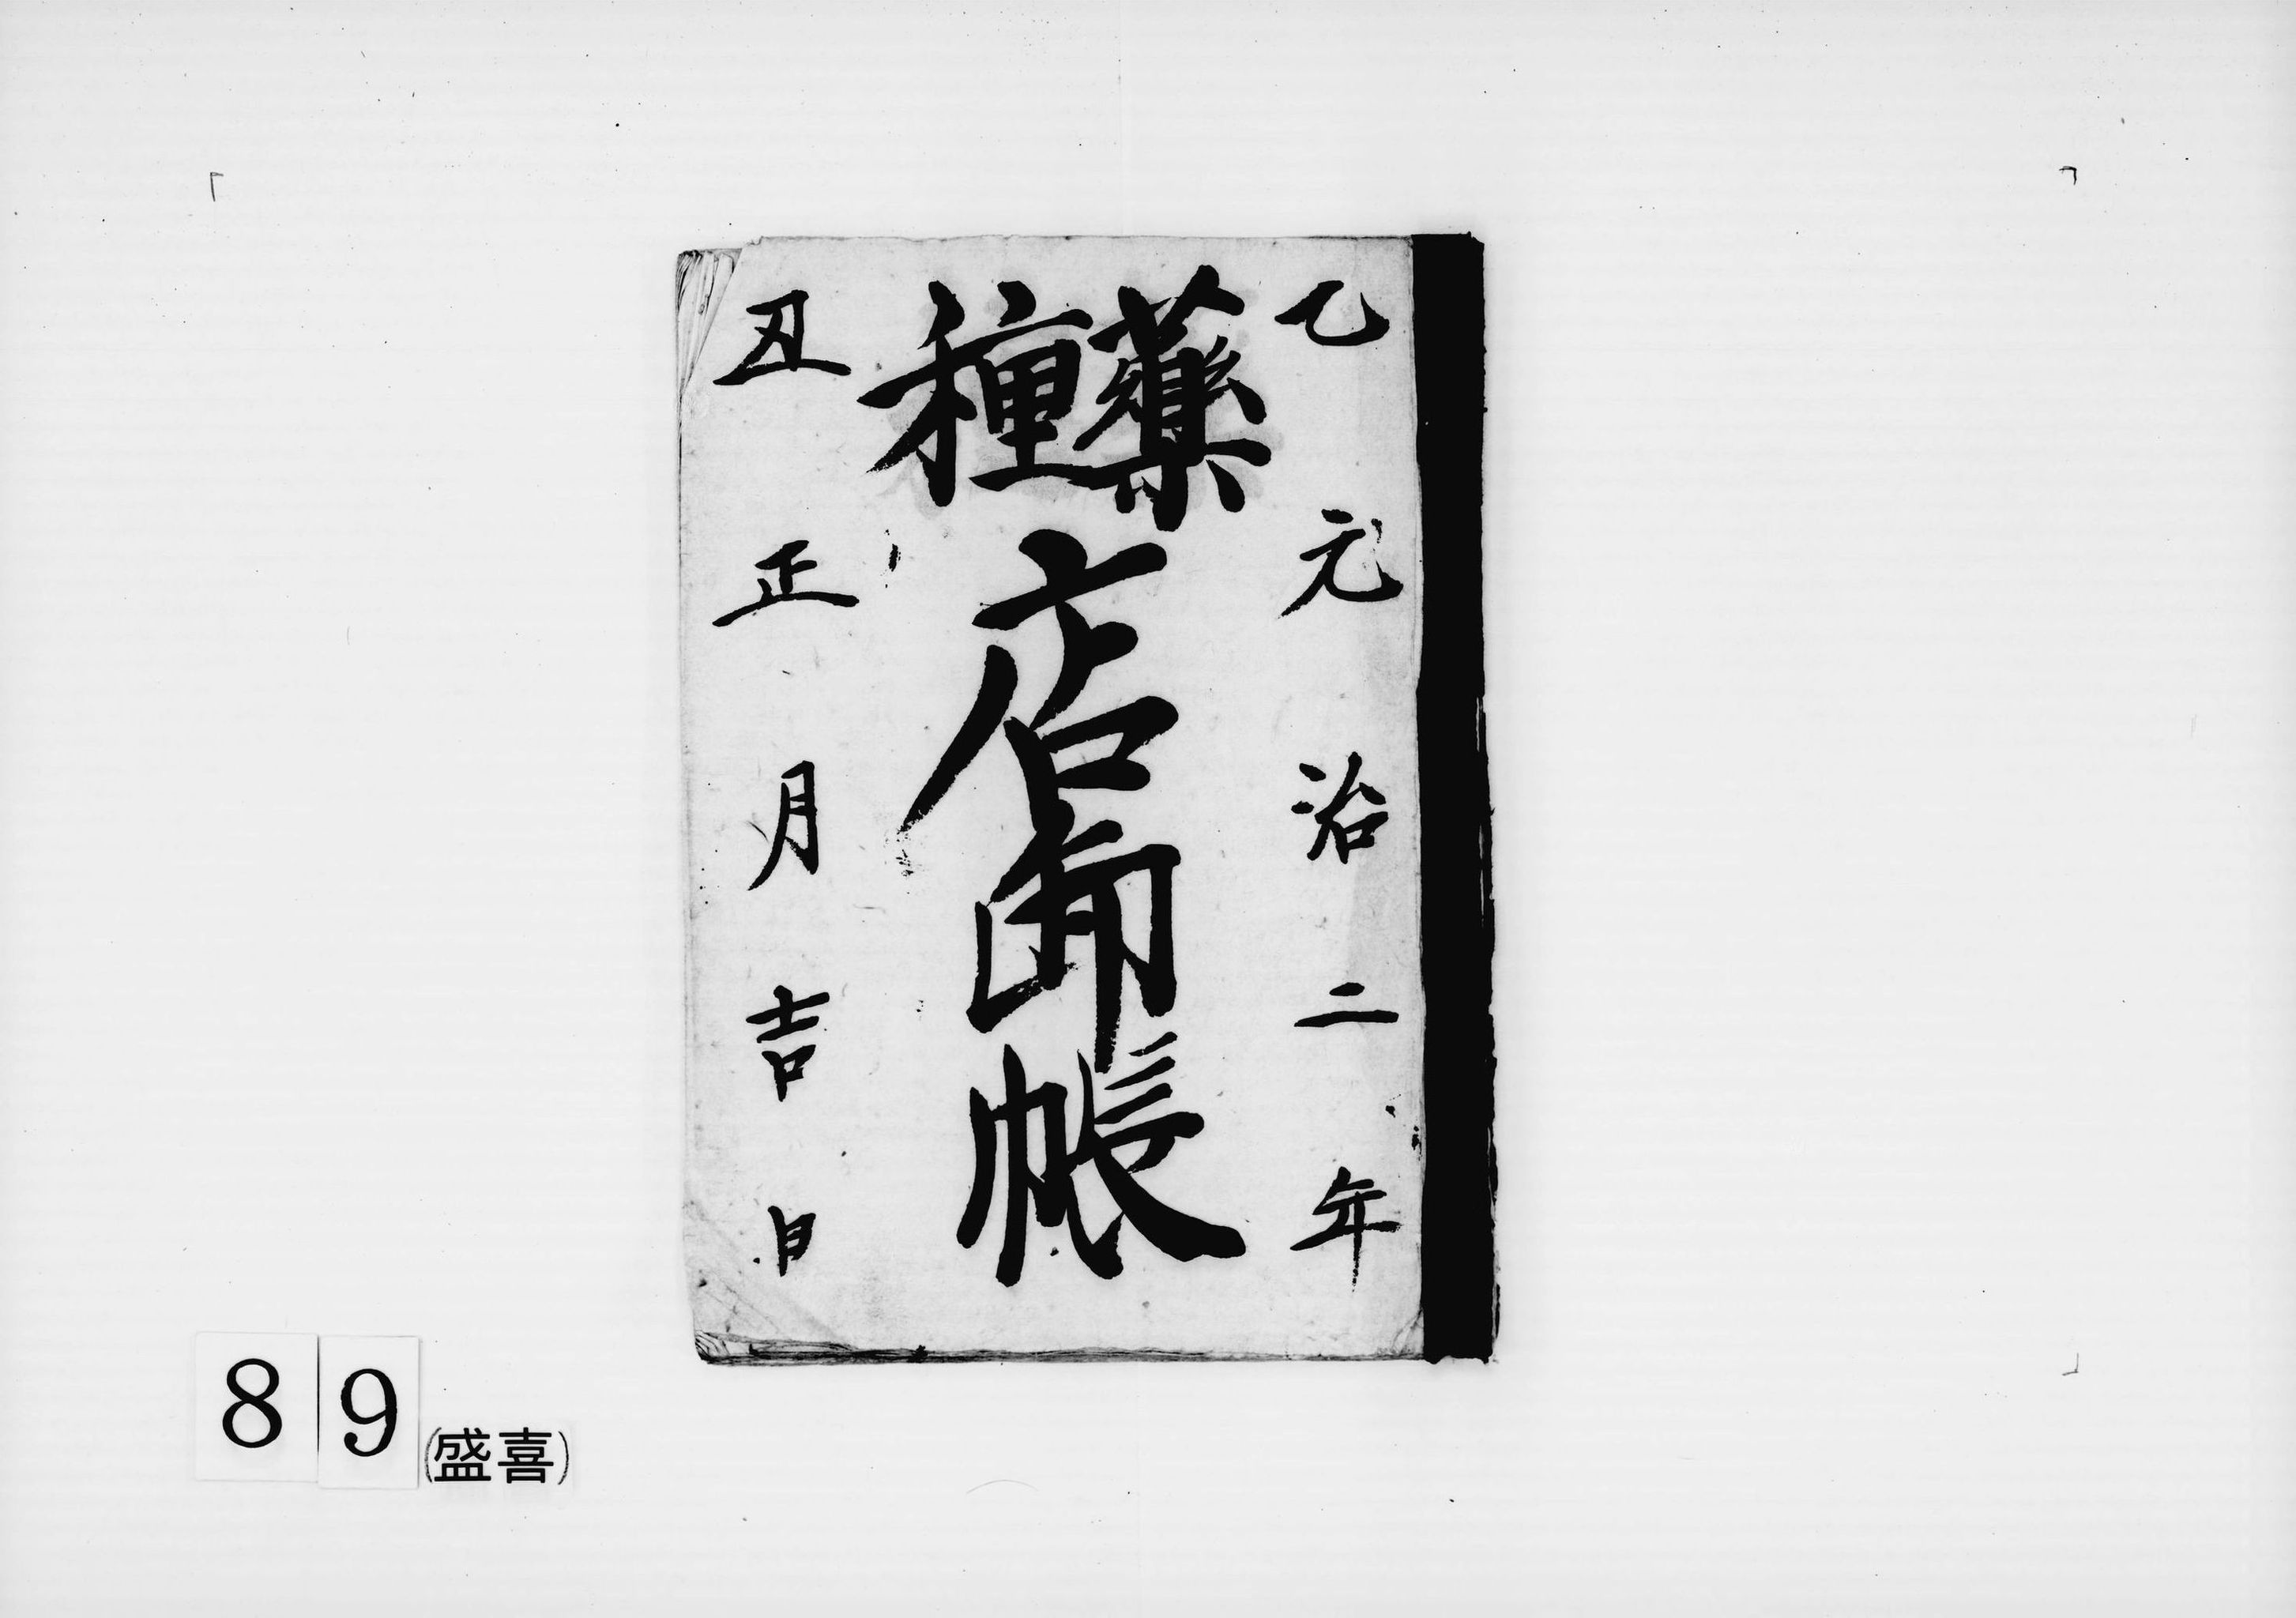 乙元治二年
藥種
店卸帳
丑正月吉日
89(盛喜)